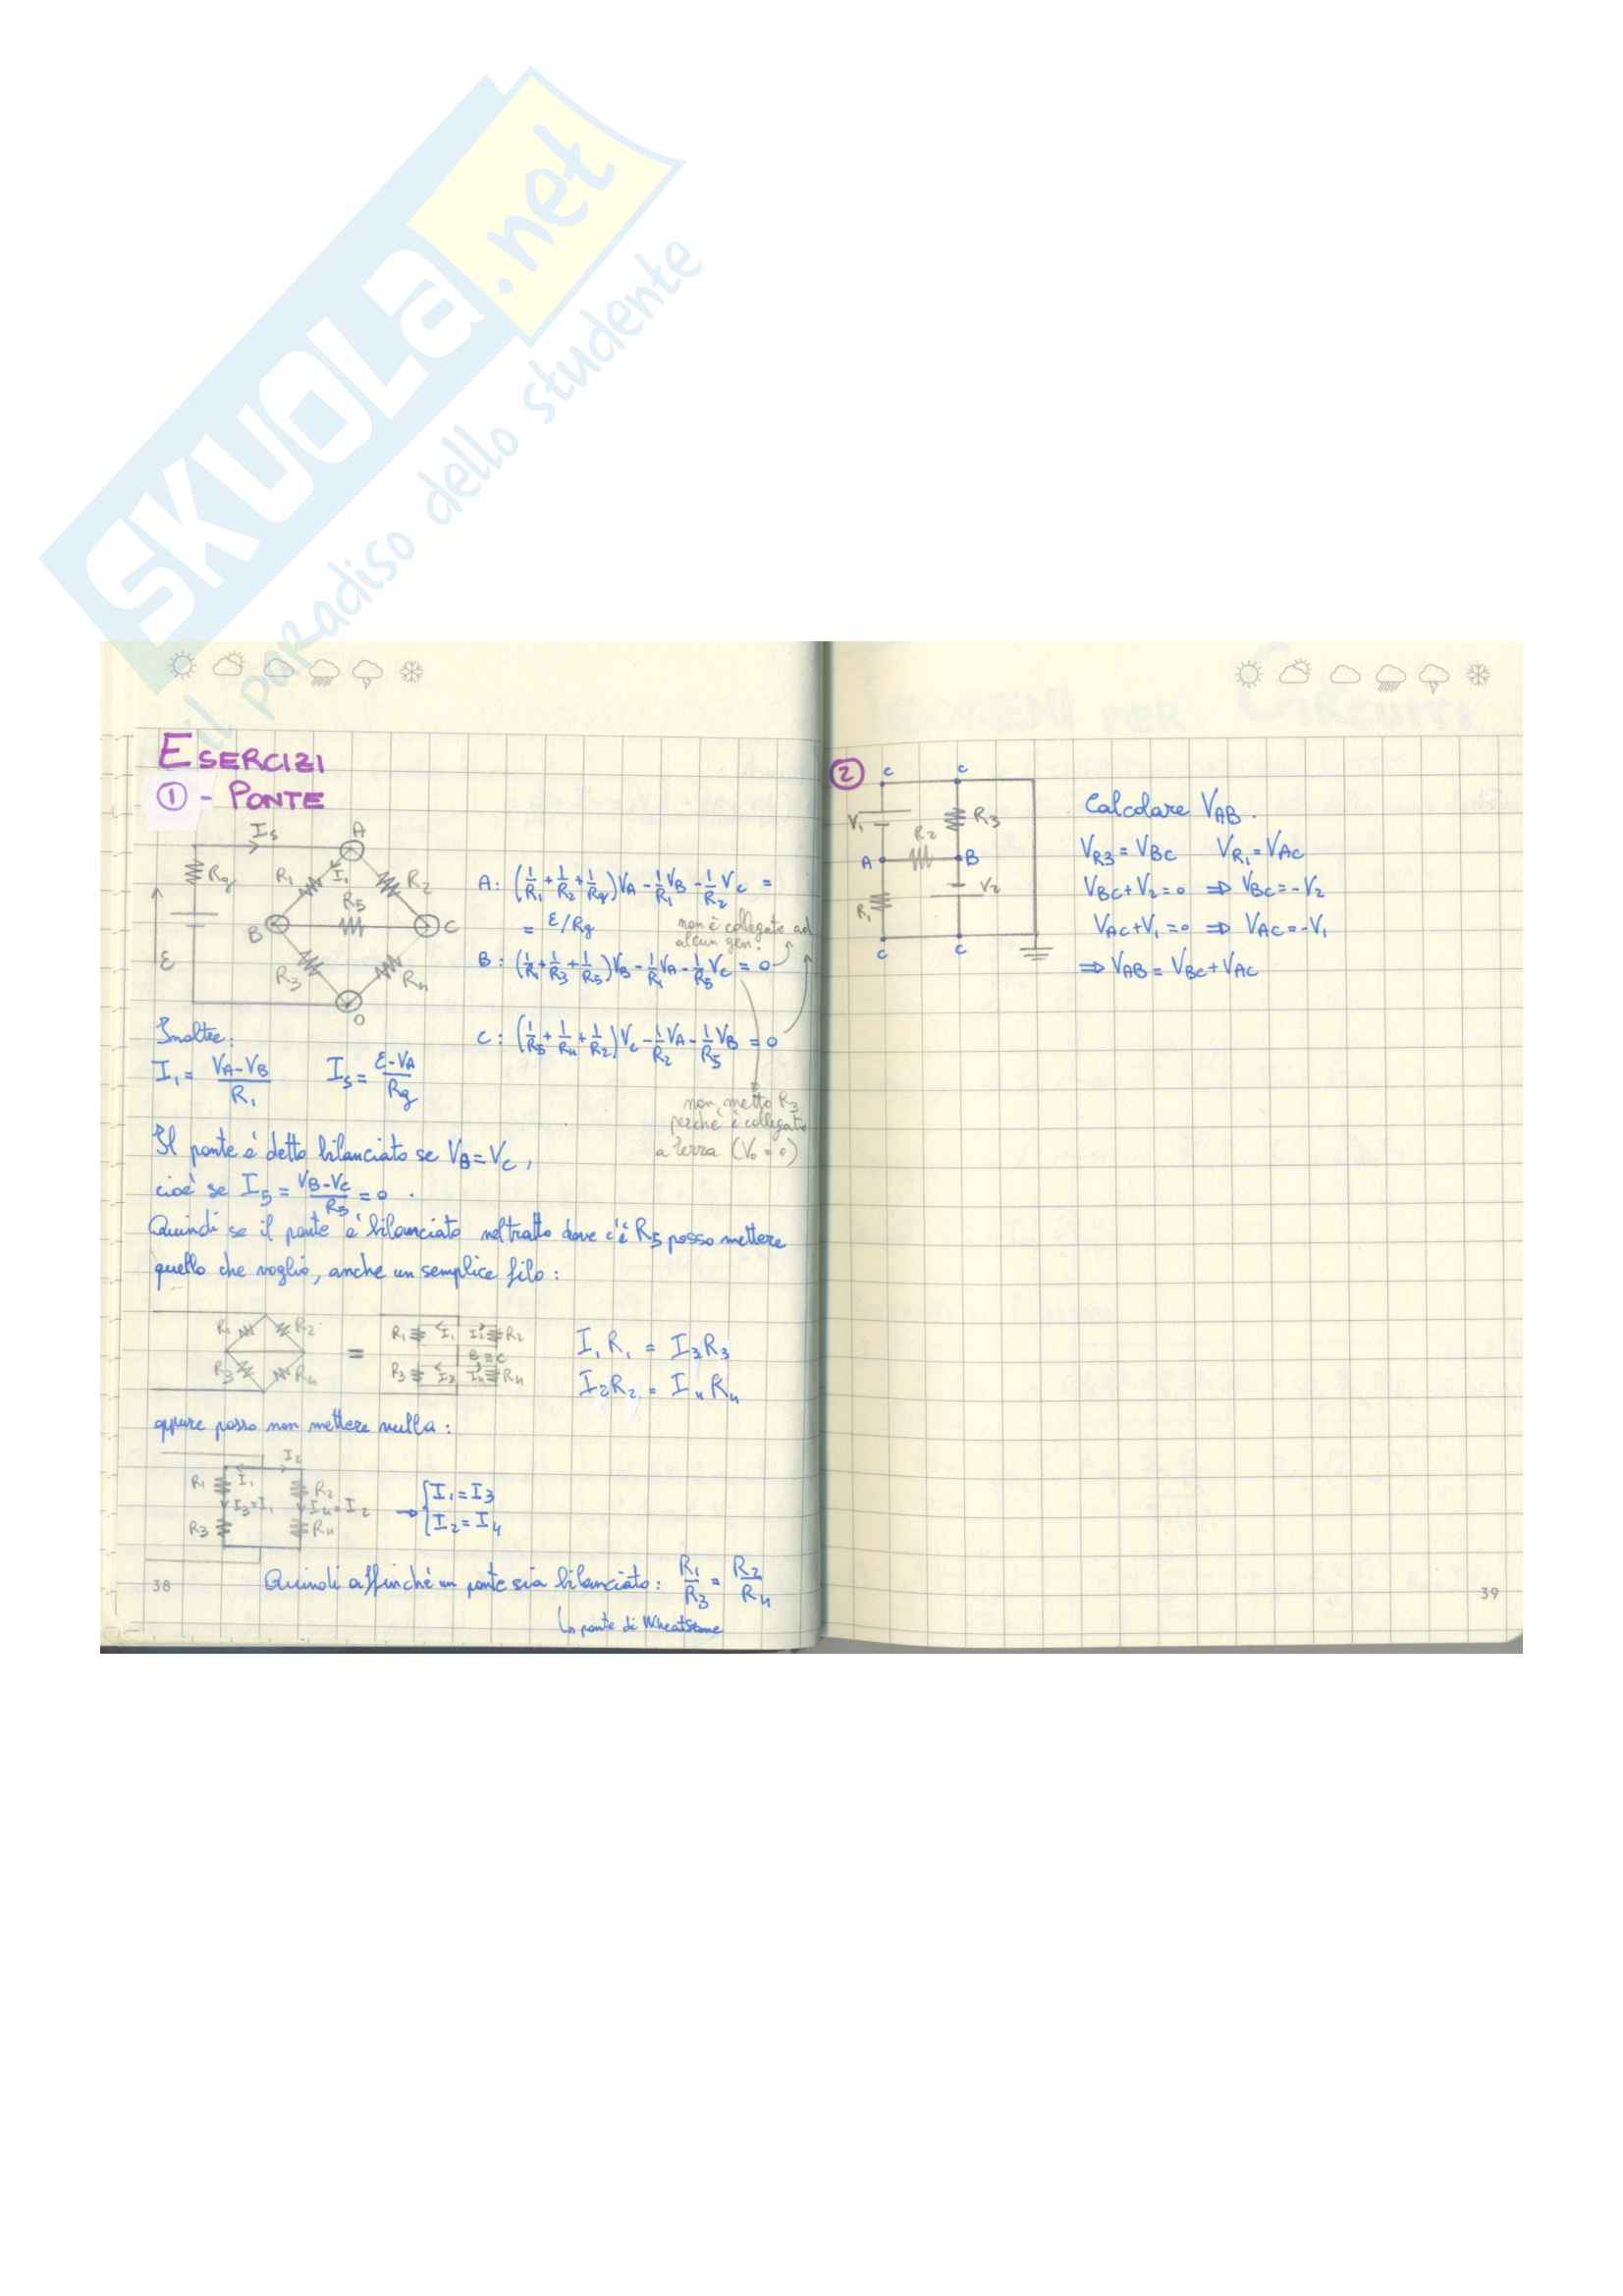 SKUOLA.net
il paradiso dello studente
ESERCIZI
① - PONTE
Is
A
Rg
R1
I1
R2
R5
B
C
ε
R3
R4
O
A: (1/R1 + 1/R2 + 1/Rg) VA - 1/R1 VB - 1/R2 VC =
= ε/Rg
non è collegato ad
alcun gen.
B: (1/R1 + 1/R3 + 1/R5) VB - 1/R1 VA - 1/R5 VC = 0
C: (1/R5 + 1/R4 + 1/R2) VC - 1/R2 VA - 1/R5 VB = 0
non metto R3
perché è collegato
a terra (V0 = 0)
Inoltre:
I1 = (VA-VB)/R1 Is = (ε-VA)/Rg
Il ponte è detto bilanciato se VB = VC,
cioè se I5 = (VB-VC)/R5 = 0.
Quindi se il ponte è bilanciato nel tratto dove c'è R5 posso mettere
quello che voglio, anche un semplice filo:
R1 R2
R3 R4
=
R1 I1 I2 R2
B≡C
R3 I3 I4 R4
I1R1 = I3R3
I2R2 = I4R4
oppure posso non mettere nulla:
I2
R1 I1 R2
I3=I1 I4=I2
R3 R4
→ { I1 = I3
I2 = I4
Quindi affinché un ponte sia bilanciato: R1/R3 = R2/R4
↳ ponte di Wheatstone
38
②
C C
V1 R2 R3
A B
R1 V2
C C
Calcolare VAB.
VR3 = VBC VR1 = VAC
VBC + V2 = 0 ⇒ VBC = -V2
VAC + V1 = 0 ⇒ VAC = -V1
⇒ VAB = VBC + VAC
39